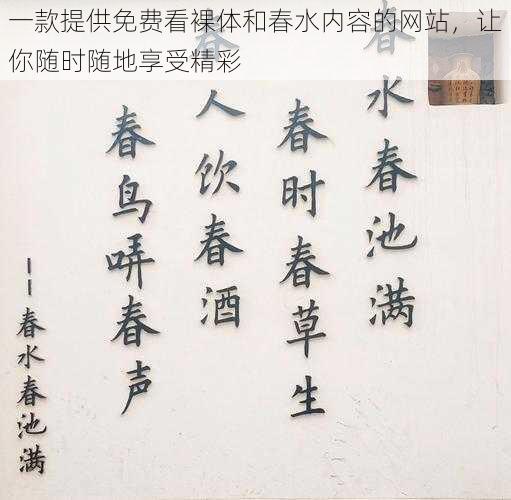 一款提供免费看裸体和春水内容的网站，让
你随时随地享受精彩
春水春池满
春时春草生
春人饮春酒
春鸟哢春声
——春水春池满